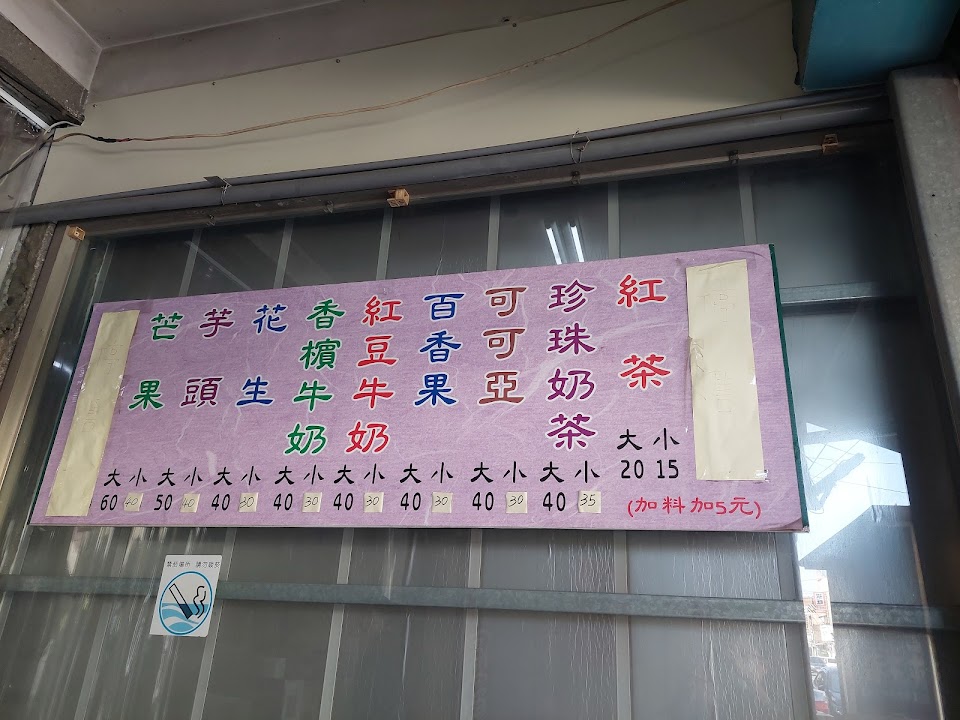 紅茶
大 小
20 15
(加料加5元)
珍珠奶茶
大 小
40 35
可可亞
大 小
40 30
百香果
大 小
40 30
紅豆牛奶
大 小
40 30
香檳牛奶
大 小
40 30
花生
大 小
40 30
芋頭
大 小
50 40
芒果
大 小
60 40
禁菸場所 請勿吸菸